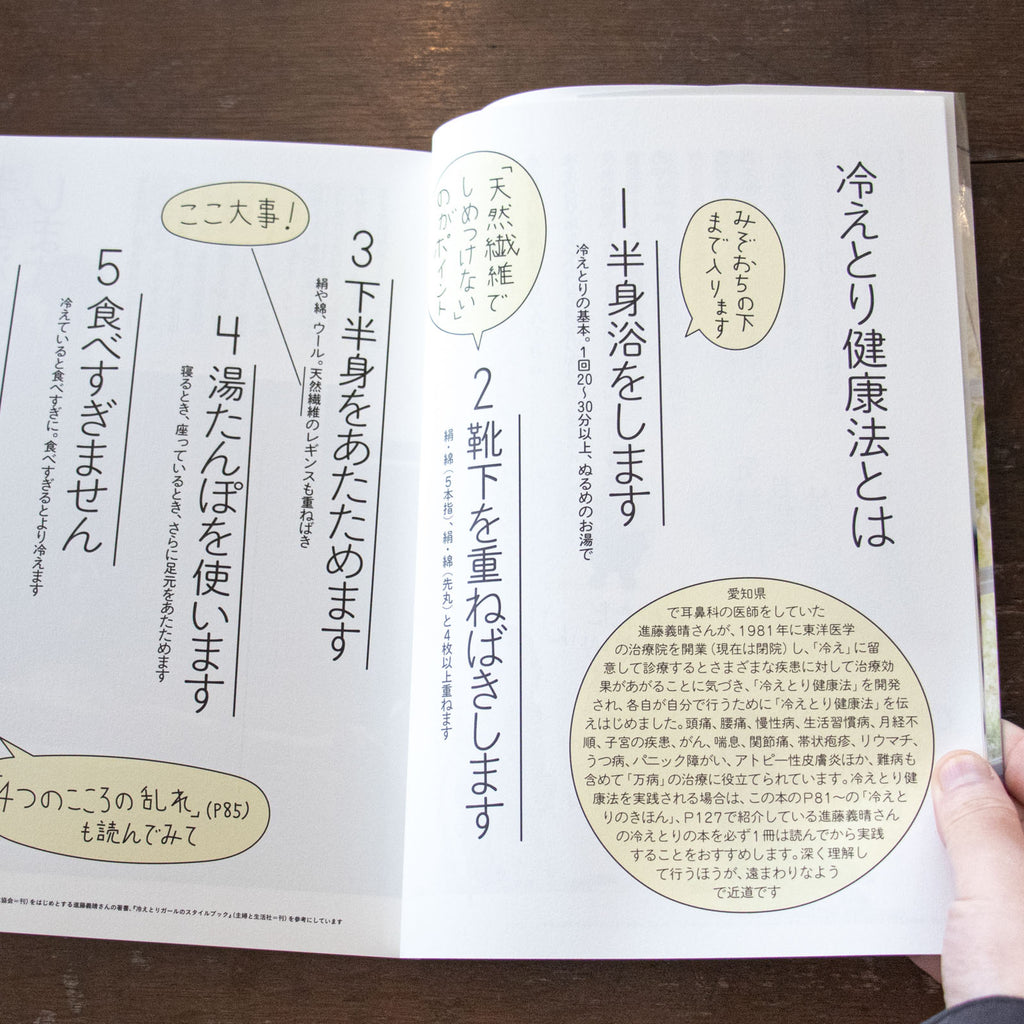 冷えとり健康法とは
みぞおちの下
まで入ります
1 半身浴をします
冷えとりの基本。1回20〜30分以上、ぬるめのお湯で
愛知県
で耳鼻科の医師をしていた
進藤義晴さんが、1981年に東洋医学
の治療院を開業(現在は閉院)し、「冷え」に留
意して診療するとさまざまな疾患に対して治療効
果があがることに気づき、「冷えとり健康法」を開発
され、各自が自分で行うために「冷えとり健康法」を伝
えはじめました。頭痛、腰痛、慢性病、生活習慣病、月経不
順、子宮の疾患、がん、喘息、関節痛、帯状疱疹、リウマチ、
うつ病、パニック障がい、アトピー性皮膚炎ほか、難病も
含めて「万病」の治療に役立てられています。冷えとり健
康法を実践される場合は、この本のP81〜の「冷えと
りのきほん」、P127で紹介している進藤義晴さん
の冷えとりの本を必ず1冊は読んでから実践
することをおすすめします。深く理解し
て行うほうが、遠まわりなよう
で近道です
「天然繊維で
しめつけない」
のがポイント
2 靴下を重ねばきします
絹・綿(5本指)、絹・綿(先丸)と4枚以上重ねます
3 下半身をあたためます
絹や綿、ウール。天然繊維のレギンスも重ねばき
ここ大事!
4 湯たんぽを使います
寝るとき、座っているとき、さらに足元をあたためます
5 食べすぎません
冷えていると食べすぎに。食べすぎるとより冷えます
4つのこころの乱れ」(P85)
も読んでみて
協会=刊)をはじめとする進藤義晴さんの著書、『冷えとりガールのスタイルブック』(主婦と生活社=刊)を参考にしています